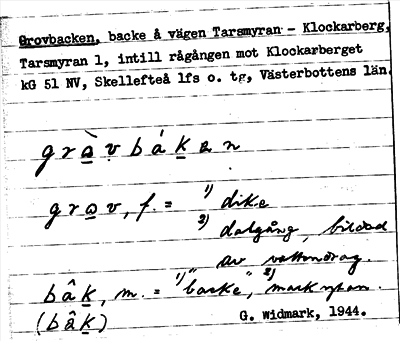 Grovbacken, backe å vägen Tarsmyran - Klockarberg,
Tarsmyran 1, intill rågången mot Klockarberget
kG 51 NV, Skellefteå lfs o. tg, Västerbottens län.
gràv bákan
grav, f. = 1) dike
2) dalgång, bildad
av vattendrag.
bâk, m. = 1) "backe", 2) markytan.
(bâk)
G. Widmark, 1944.